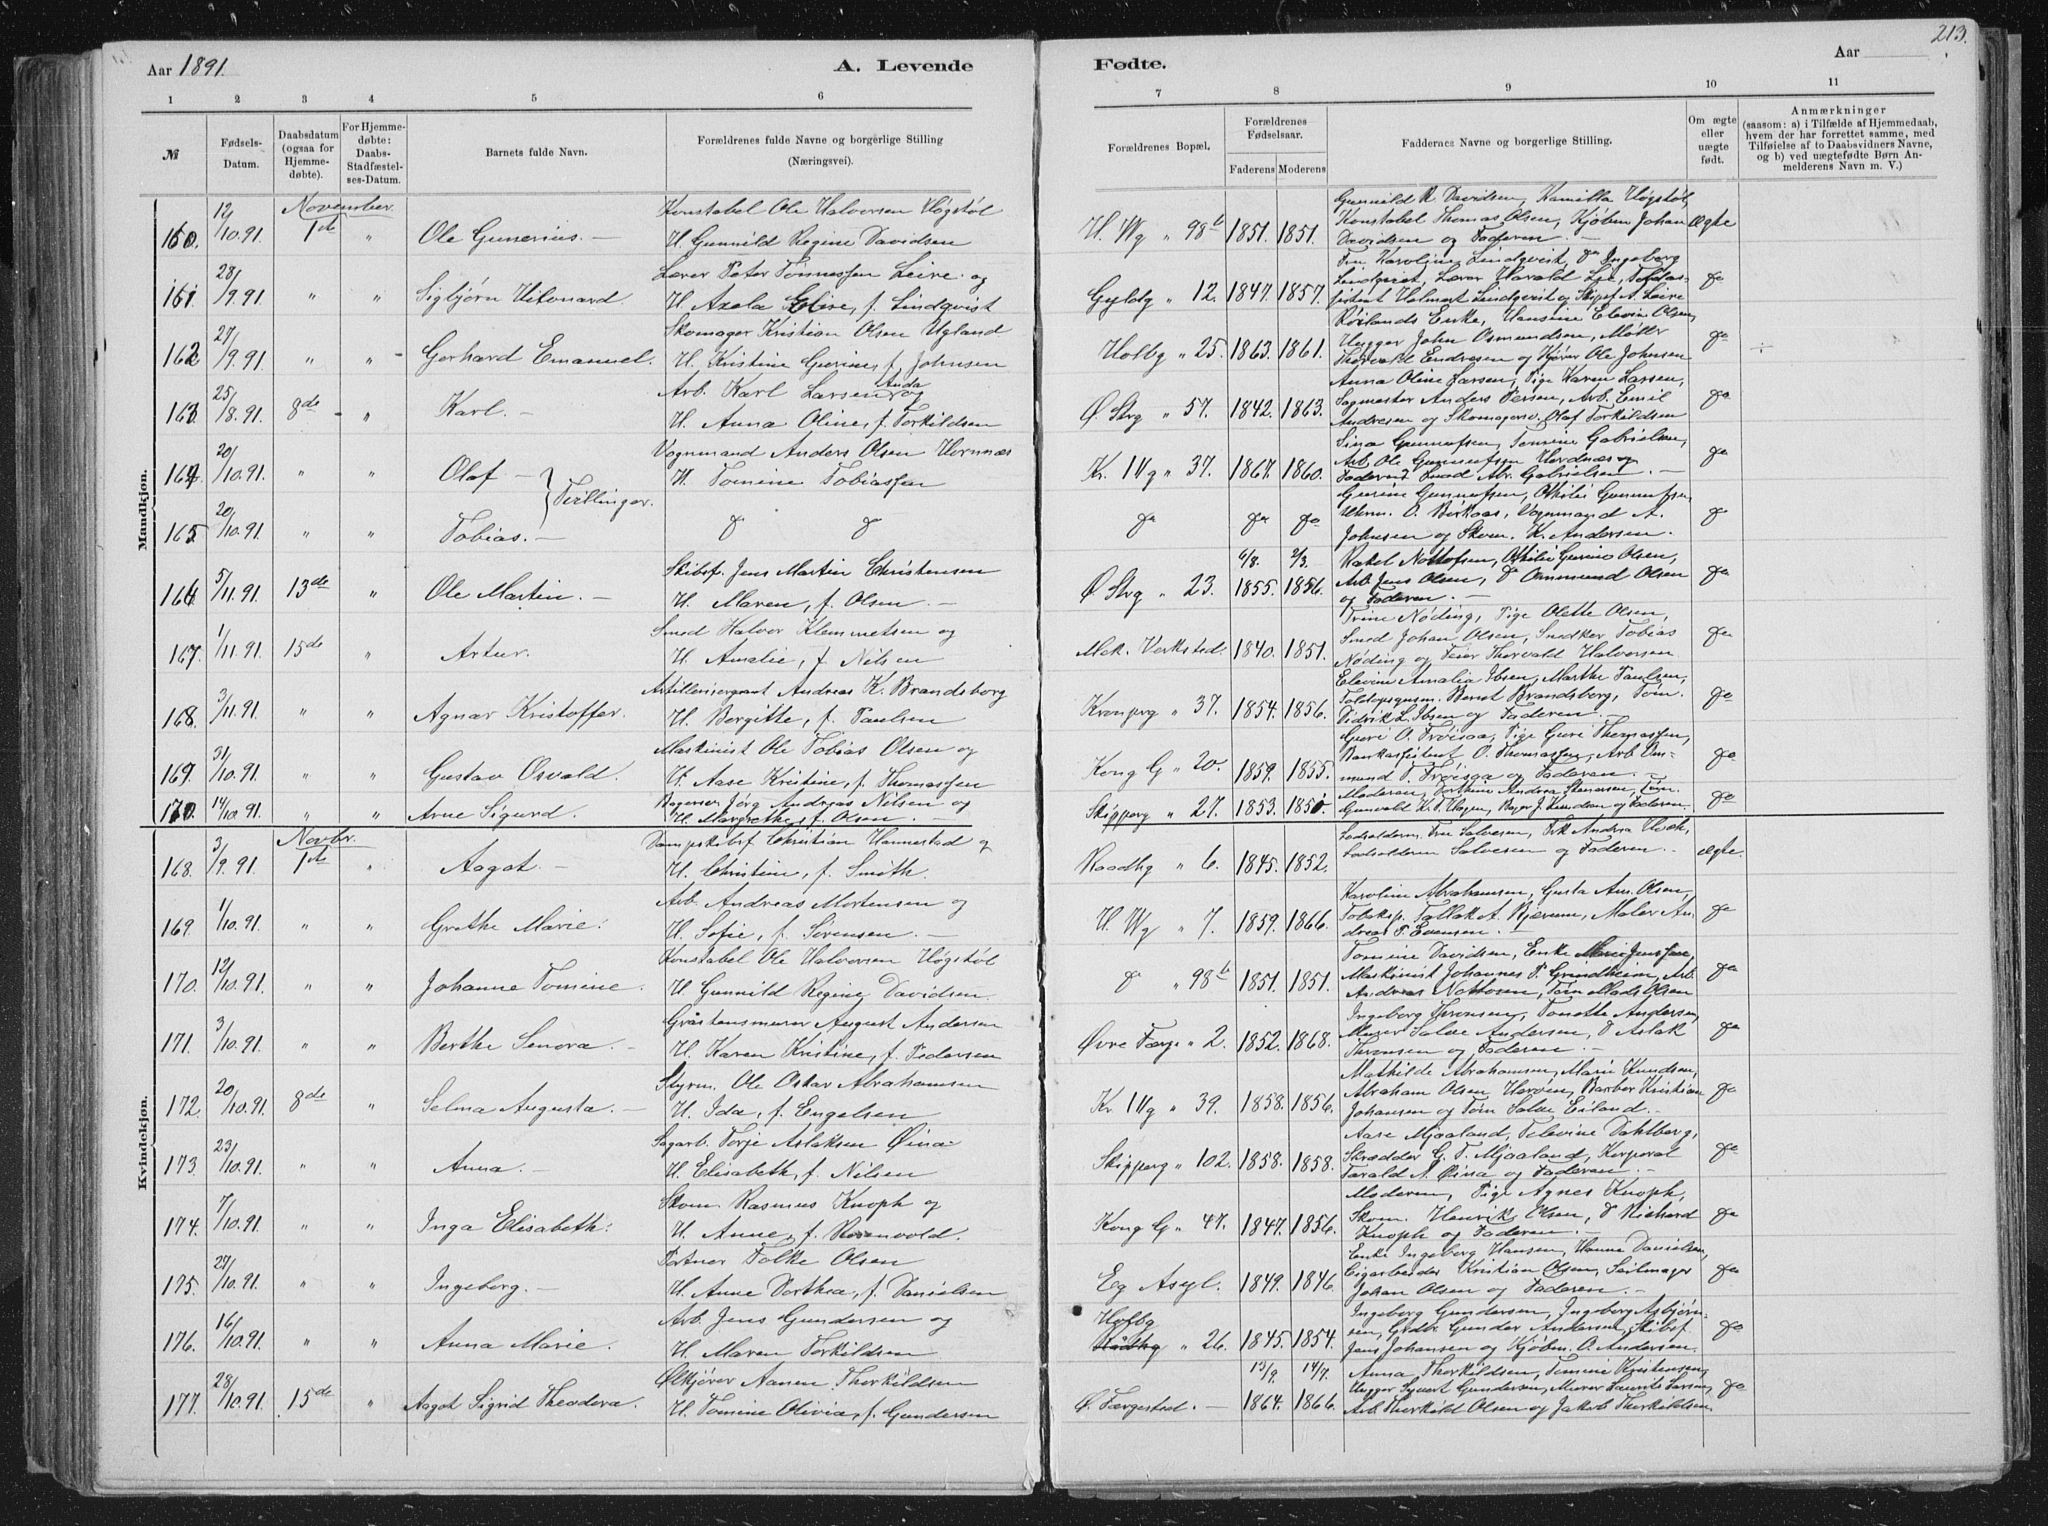 213.
Aar 1891. A. Levende Fødte. Aar
1 2 3 4 5 6 7 8 9 10 11
№ Fødsels-Datum. Daabsdatum (ogsaa for Hjemme-døbte). For Hjemme-døbte: Daabs-Stadfæstel-ses-Datum. Barnets fulde Navn. Forældrenes fulde Navne og borgerlige Stilling (Næringsvei). Forældrenes Bopæl. Forældrenes Fødselsaar. Faderens Moderens Faddernes Navne og borgerlige Stilling. Om ægte eller uægte født. Anmærkninger (saasom: a) i Tilfælde af Hjemmedaab, hvem der har forrettet samme, med Tilføielse af to Daabsvidners Navne, og b) ved uægtefødte Børn An-melderens Navn m. V.)
Mandkjøn.
November
Konstabel Ole Halvorsen Høgstøl Gunnild R. Davidsen, Kamilla Høgstøl,
160. 12/10.91. 1ste " Ole Gunerius. — H. Gunnild Regine Davidsen H. Wg " 98b 1851. 1851. Konstabel Thomas Olsen, Kjøbm Johan Davidsen og Faderen. — ægte
Lærer Peter Tønnessen Leire og Fru Karoline Lindqvist, do Ingeborg
161. 28/9.91. " " Sigbjørn H. Axela Elise, f. Lindqvist Gyldg " 12. 1847. 1857. Lindqvist, Lærer Harald Lie, Lindqvist og Skipsf. A. Leire do
Skomager Kristian Olsen Ugland Røilands Enke, Hansine Elevin Olsen,
162 27/9.91. " " Gerhard Emanuel. H. Kristine Gurine, f. Johnsen Holbg " 25. 1863. 1861. Hugger John Osmundsen, Møller Thorvald Endresen og Kjører Ole Johnsen do
Arb. Karl Larsen Anda og Anna Oline Larsen, Pige Karen Larsen,
163 25/8.91. 8de " Karl. — H. Anna Oline, f. Torkildsen Ø. Strg " 57. 1842. 1863. Sagmester Anders Persen, Arb. Emil Andresen og Skomagersv. Olaf Torkildsen do
Vognmand Anders Olsen Hornnæs Sina Gunnufsen, Tomine Gabrielsen,
164. 20/10.91. " " Olaf — } Tvillinger. H. Tomine Tobiassen Kr. IVg " 37. 1867. 1860. Arb. Ole Gunnufsen Hordnæs og Abr. Gabrielsen. — do
165 20/10.91. " " Tobias. — do do do do do Gurine Gunnufsen, Othilie Gunnufsen, O. Birkaas, Vognmand A. Johnsen og Skom. K. Andersen. do
Skibsf. Jens Martin Christensen 6/8. 2/3. Rakel Nottofsen, Othilie Gurine Olsen,
166 5/11.91. 13de " Ole Martin. — H. Maren, f. Olsen. — Ø Strg " 23. 1855. 1856. Arb. Jens Olsen, do Ommund Olsen og Faderen. — do
Smed Halvor Klemmetsen og Trine Nøding, Pige Olette Olsen,
167. 1/11.91. 15de " Artur. H. Amalie, f. Nilsen Mek. Verksted. 1840. 1851. Smed Johan Olsen, Snedker Tobias Nøding og Feier Thorvald Halvorsen do
Artillerisergeant Andreas K. Brandsborg Elevine Amalia Ibsen, Marthe Paulsen,
168. 3/11.91. " " Agnar Kristoffer. H. Bergitte, f. Paulsen Kronprg " 37. 1854. 1856. Bernt Brandsborg, Tøm. Didrik L. Ibsen og Faderen. — do
Maskinist Ole Tobias Olsen og Guri O. Frøisaa, Pige Guri Thomassen,
169. 31/10.91. " " Gustav Osvald. H. Aase Kristine, f. Thomassen Kong G " 20. 1859. 1855. Bankassistent O. Thomassen, Arb Om-mund T. Frøisaa og Faderen. — do
170. 14/10.91. " " Arne Sigurd. Bagersv. Jørg. Andreas Nilsen og H. Margrethe, f. Olsen. — Skipperg " 27. 1853. 1850. Moderen, Andrea Stenersen, Tøm. Gunvald K. T. Hagen, Bager J. Knudsen og Faderen. do
Kvindekjøn.
Novbr.
Dampskibsf Christian Hannestad og Lodsolderm. Fru Salvesen, Frk Andrea
168. 3/9.91. 1ste " Aagot. — H. Christine, f. Smith. Raadhg " 6. 1845. 1852. Lodsolderm Salvesen og Faderen. — ægte.
Arb. Andreas Mortensen og Karoline Abrahamsen, Gusta Am. Olsen,
169. 1/10.91. " " Grethe Marie. H. Sofie, f. Sørensen. — H. Wg " 7. 1859. 1866. Tallak A. Bjerum, Maler An-dreas P. Evensen. — do
Konstabel Ole Halvorsen Høgstøl Tomine Davidsen, Enke Marie Jenssen,
170. 12/10.91. " " Johanne Tomine. H. Gunnild Regine Davidsen. do " 98b 1851. 1851. Maskinist Johannes P. Grindheim, Arb. Andreas Nottosen, Tøm Mads Olsen do
Gråstensmurer August Andersen Ingeborg Thronsen, Tonette Andersen,
171. 3/10.91. " " Berthe Senora. — H. Karen Kristine, f. Pedersen Øvre Færge " 2. 1852. 1868. Murer Salve Andersen, do Aslak Thronsen og Faderen. — do
Styrm. Ole Oskar Abrahamsen Mathilde Abrahamsen, Marie Knudsen,
172. 20/10.91. 8de " Selma Augusta. — H. Ida, f. Engelsen Kr. IVg " 39. 1858. 1856. Abraham Olsen Havøen, Barber Kristian Johansen og Tøm Salve Eiland. — do
Sagarb. Torje Aslaksen Øina Aase Mjaaland, Televine Dahlberg,
173. 23/10.91. " " Anna. — H. Elisabeth, f. Nilsen Skipperg " 102. 1858. 1858. Skrædder G. T. Mjaaland, Korporal Tarald A. Øina og Faderen. — do
Skom. Rasmus Knoph og Moderen, Pige Agnes Knoph,
174. 7/10.91. " " Inga Elisabeth. H. Anne, f. Rosenvold. Kong G " 47. 1847. 1856. Skom. Henrik Olsen, do Richard Knoph og Faderen. — do
Portner Folke Olsen Enke Ingeborg Hansen, Hanne Danielsen,
175. 29/10.91. " " Ingeborg. — H. Anne Dorthea, f. Danielsen Eg Asyl. 1849. 1846. Cigararbeider Kristian Olsen, Seilmager Johan Olsen og Faderen. — do
Arb. Jens Gundersen og Holbg Ingeborg Gundersen, Ingeborg Asbjørn-
176. 16/10.91. " " Anna Marie. H. Maren Torkildsen Rådhg " 26. 1845. 1854. sen, Grdbr. Gunder Andersen, Skibsf Jens Johansen og Kjøbm. O. Andersen. do
Ølkjører Aanen Thorkildsen 13/9 14/7. Anna Thorkildsen, Tomine Kristensen,
177. 28/10.91. 15de " Aagot Sigrid Theodora. H. Tomine Olivia, f. Gundersen Ø. Færgestad. — 1864. 1866. Hugger Syvert Gundersen, Murer Laurits Larsen, Arb. Thorkild Olsen og Jakob Thorkildsen. do